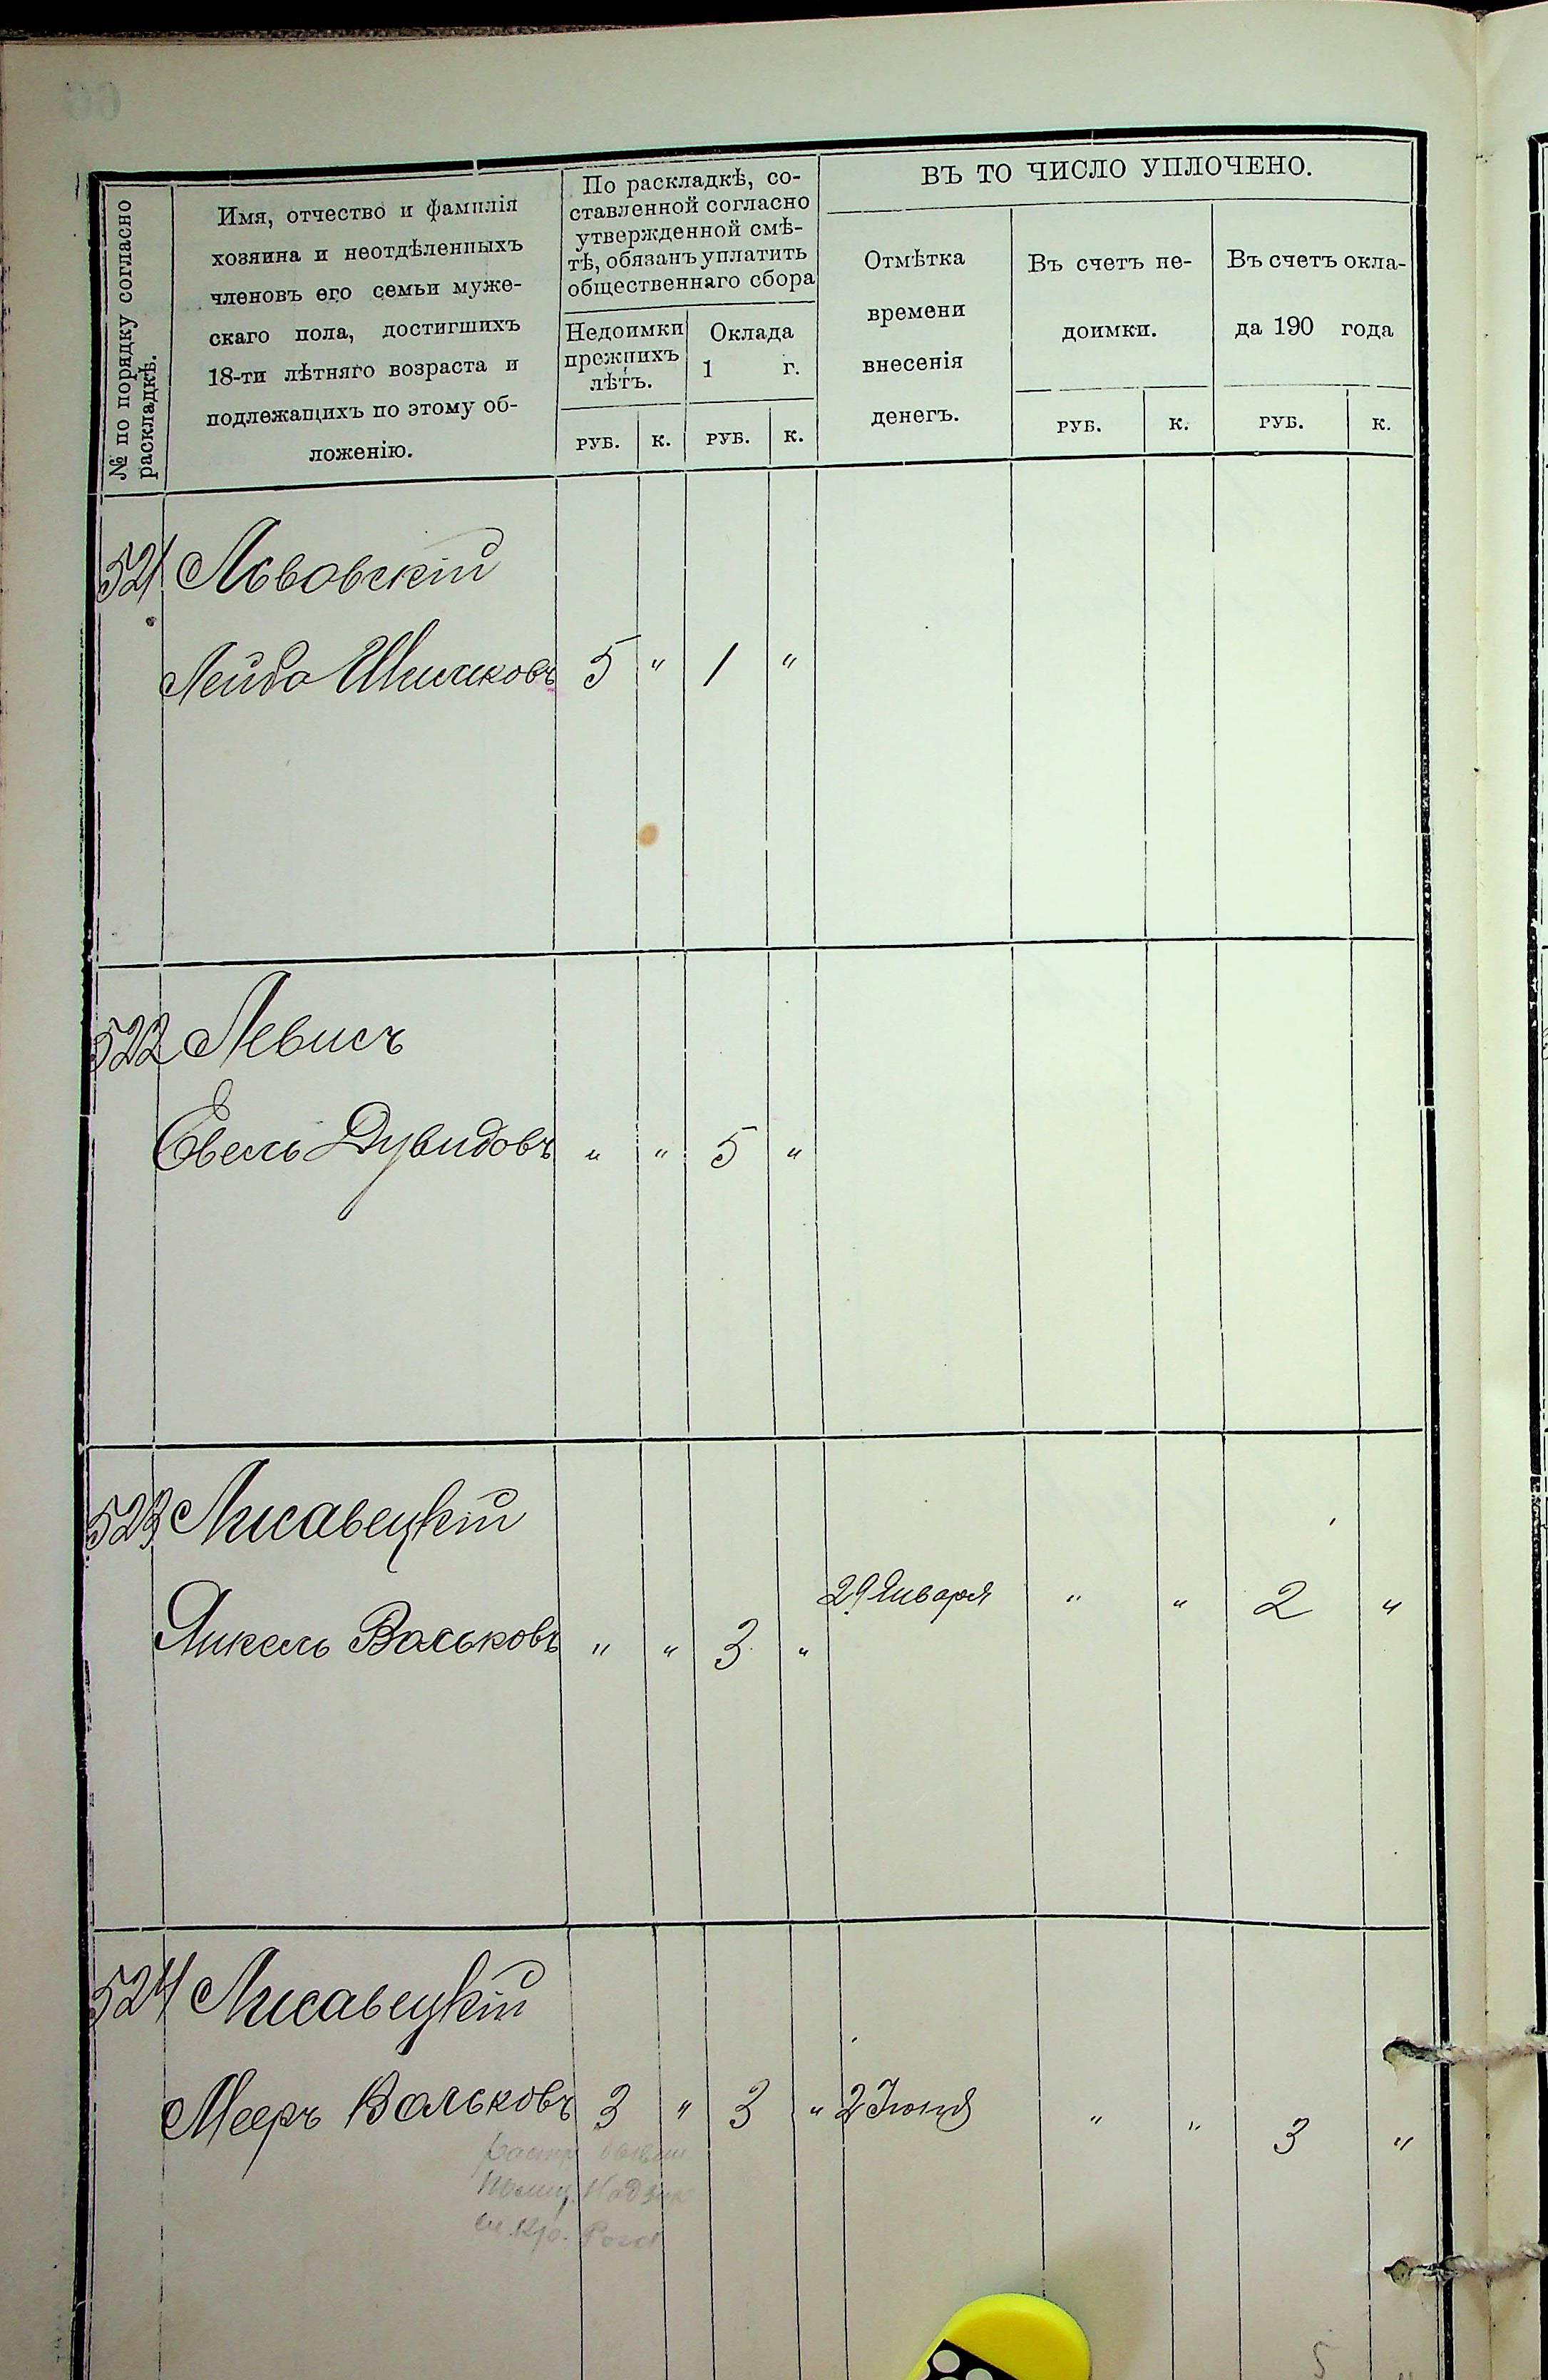 № по порядку согласно
раскладкѣ.
Имя, отчество и фамилія
хозяина и неотдѣленныхъ
членовъ его семьи муже-
скаго пола, достигшихъ
18-ти лѣтняго возраста и
подлежащихъ по этому об-
ложенію.
По раскладкѣ, со-
ставленной согласно
утвержденной смѣ-
тѣ, обязанъ уплатить
общественнаго сбора
Недоимки
прежнихъ
лѣтъ.
Оклада
1 г.
РУБ. К. РУБ. К.
ВЪ ТО ЧИСЛО УПЛОЧЕНО.
Отмѣтка
времени
внесенія
денегъ.
Въ счетъ не-
доимки.
Въ счетъ окла-
да 190 года
РУБ. К. РУБ. К.
521 Львовскій
Лейба 5 " 1 "
522 Левисъ
Евель Дувидовъ " " 5 "
523 Лисавецкій
29 Января " " 2 "
Янкель Вольковъ " " 3 "
524 Лисавецкій
Мееръ Вольковъ 3 " 3 " 2 Іюня " " 3 "
5 "